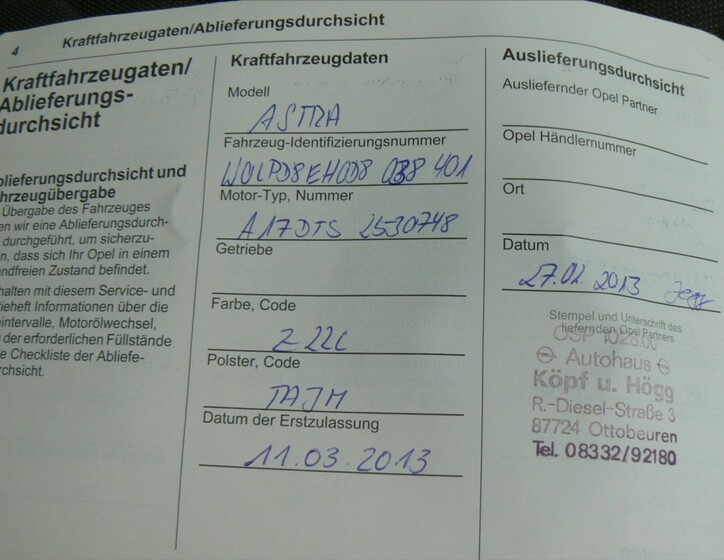 4
Kraftfahrzeugaten/Ablieferungsdurchsicht
Kraftfahrzeugaten/
Ablieferungs-
durchsicht
blieferungsdurchsicht und
hrzeugübergabe
Übergabe des Fahrzeuges
en wir eine Ablieferungsdurch-
durchgeführt, um sicherzu-
n, dass sich Ihr Opel in einem
ndfreien Zustand befindet.
halten mit diesem Service- und
tieheft Informationen über die
eintervalle, Motorölwechsel,
der erforderlichen Füllstände
e Checkliste der Abliefe-
rchsicht.
Kraftfahrzeugdaten
Modell
ASTRA
Fahrzeug-Identifizierungsnummer
W0LPD8EH0D8 038 401
Motor-Typ, Nummer
A17DTS 2530748
Getriebe
Farbe, Code
Z 22C
Polster, Code
TAJM
Datum der Erstzulassung
11.03.2013
Auslieferungsdurchsicht
Ausliefernder Opel Partner
Opel Händlernummer
Ort
Datum
27.02.2013
Stempel und Unterschrift des
liefernden Opel Partners
Autohaus
Köpf u. Högg
R.-Diesel-Straße 3
87724 Ottobeuren
Tel. 08332/92180